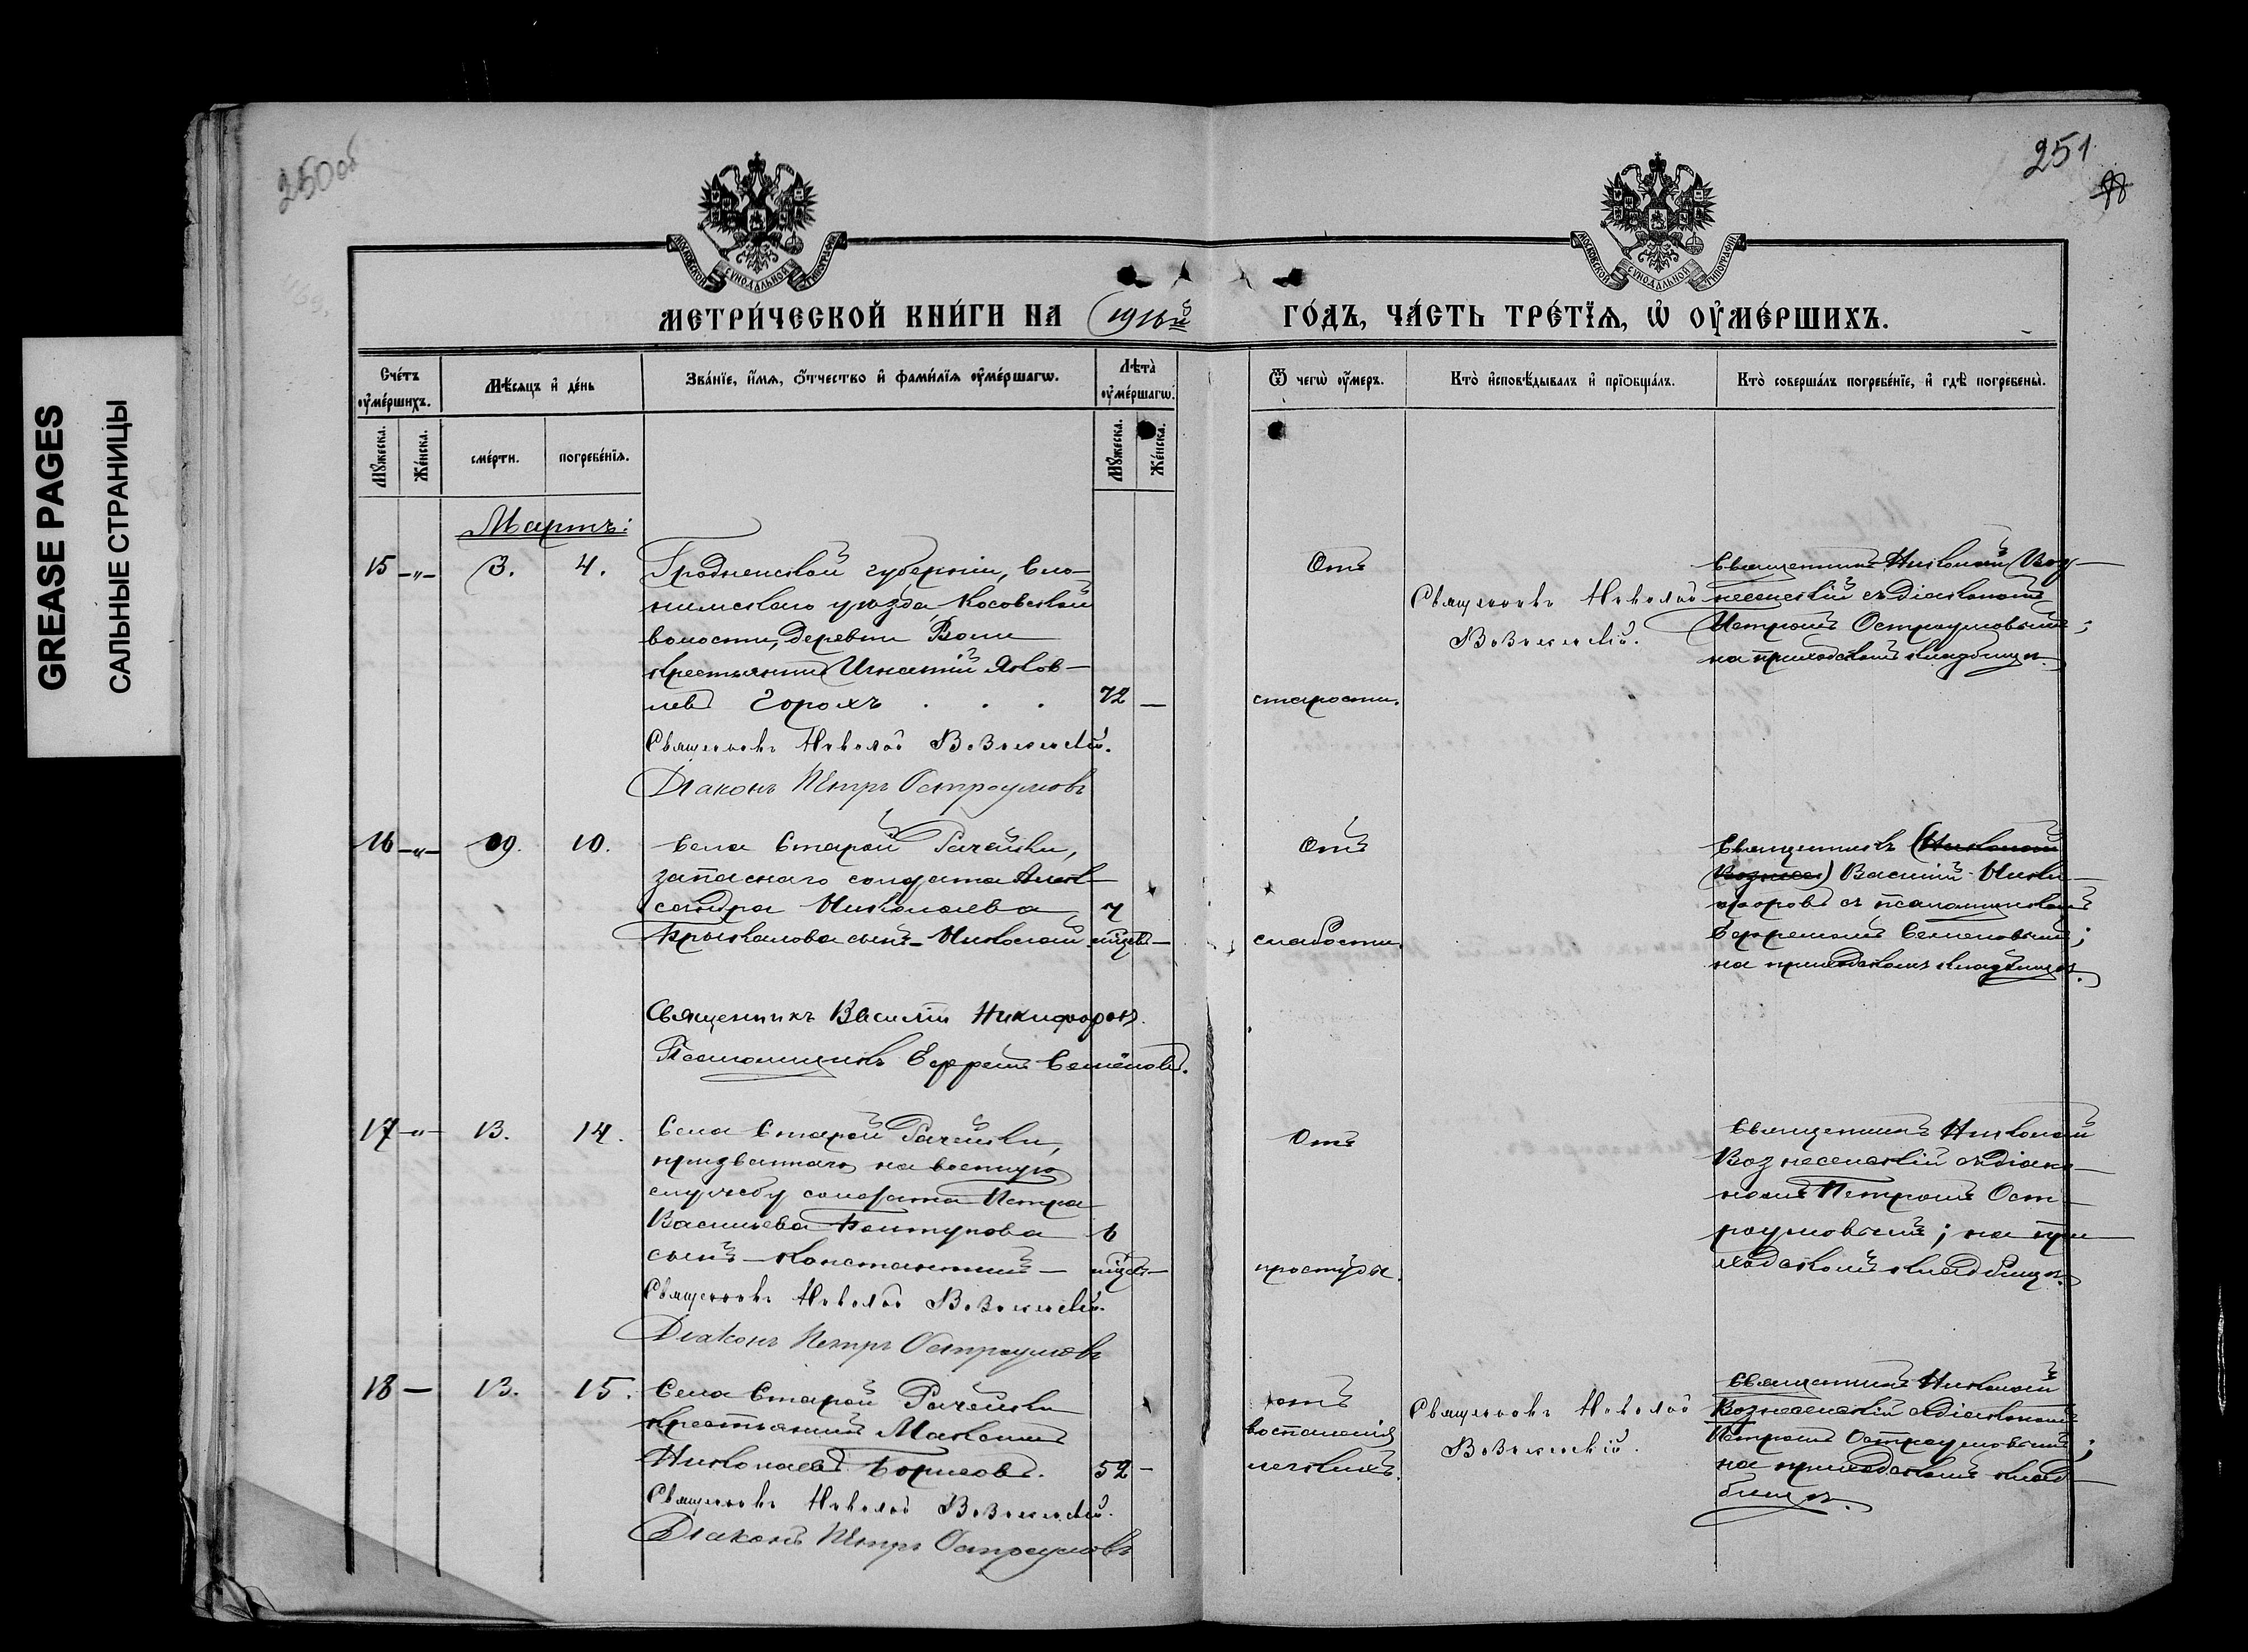 GREASE PAGES
САЛЬНЫЕ СТРАНИЦЫ
250об
251
МОСКОВСКОЙ СѴНОДАЛЬНОЙ ТИПОГРАФІИ
МОСКОВСКОЙ СѴНОДАЛЬНОЙ ТИПОГРАФІИ
МЕТРИ́ЧЕСКОЙ КНИ́ГИ НА 1916й ГО́ДЪ, ЧА́СТЬ ТРЕ́ТІѦ, Ѡ҆ ОУ҆МЕ́РШИХЪ.
Сче́тъ оу҆ме́ршихъ.
Мѣ́сяцъ и҆ де́нь
Зва́нїе, и҆́мѧ, ѻ҆́тчество и҆ фами́лїѧ оу҆ме́ршагѡ.
Лѣта̀ оу҆ме́ршагѡ.
Ѿ чегѡ̀ оу҆́меръ.
Кто̀ и҆сповѣ́дывалъ и҆ прїѻбща́лъ.
Кто̀ соверша́лъ погребе́нїе, и҆ гдѣ̀ погребены̀.
Мꙋ́жеска.
Же́нска.
сме́рти.
погребе́нїѧ.
Мꙋ́жеска.
Же́нска.
Мартъ:
15 –"– 3. 4.
Гродненской губерніи, Сло-
нимскаго уѣзда, Косовской
волости, деревни Воли
крестьянинъ Игнатій Яков-
левъ Горохъ . . . 72 –
Священникъ Николай Вознесенскій.
Діаконъ Петръ Остроумовъ
Отъ
старости.
Священникъ Николай
Вознесенскій.
Священникъ Николай Воз-
несенскій съ діакономъ
Петромъ Остроумовымъ;
на приходскомъ кладбищѣ.
16 –"– 9. 10.
Села Старой Рачейки,
запаснаго солдата Алек-
сандра Николаева 7
Крыкалова сынъ – Николай мцевъ –
Священникъ Василій Никифоровъ.
Псаломщикъ Ефремъ Семёновъ.
Отъ
слабости.
Священникъ (Николай
Вознесен) Василій Ники-
форовъ съ псаломщикомъ
Ефремомъ Семеновымъ;
на приходскомъ кладбищѣ.
17 –"– 13. 14.
Села Старой Рачейки,
призваннаго на военную
службу солдата Петра
Васильева 6
сынъ – Константинъ – мцевъ –
Священникъ Николай Вознесенскій.
Діаконъ Петръ Остроумовъ
Отъ
простуды.
Священникъ Николай
Вознесенскій съ діако-
номъ Петромъ Ост-
роумовымъ; на при-
ходскомъ кладбищѣ.
18 – 13. 15.
Села Старой Рачейки
крестьянинъ Максимъ
Николаевъ Борисовъ. 52 –
Священникъ Николай Вознесенскій.
Діаконъ Петръ Остроумовъ
отъ
воспаленія
легкихъ.
Священникъ Николай
Вознесенскій.
Священникъ Николай
Вознесенскій съ діакономъ
Петромъ Остроумовымъ;
на приходскомъ клад-
бищѣ.